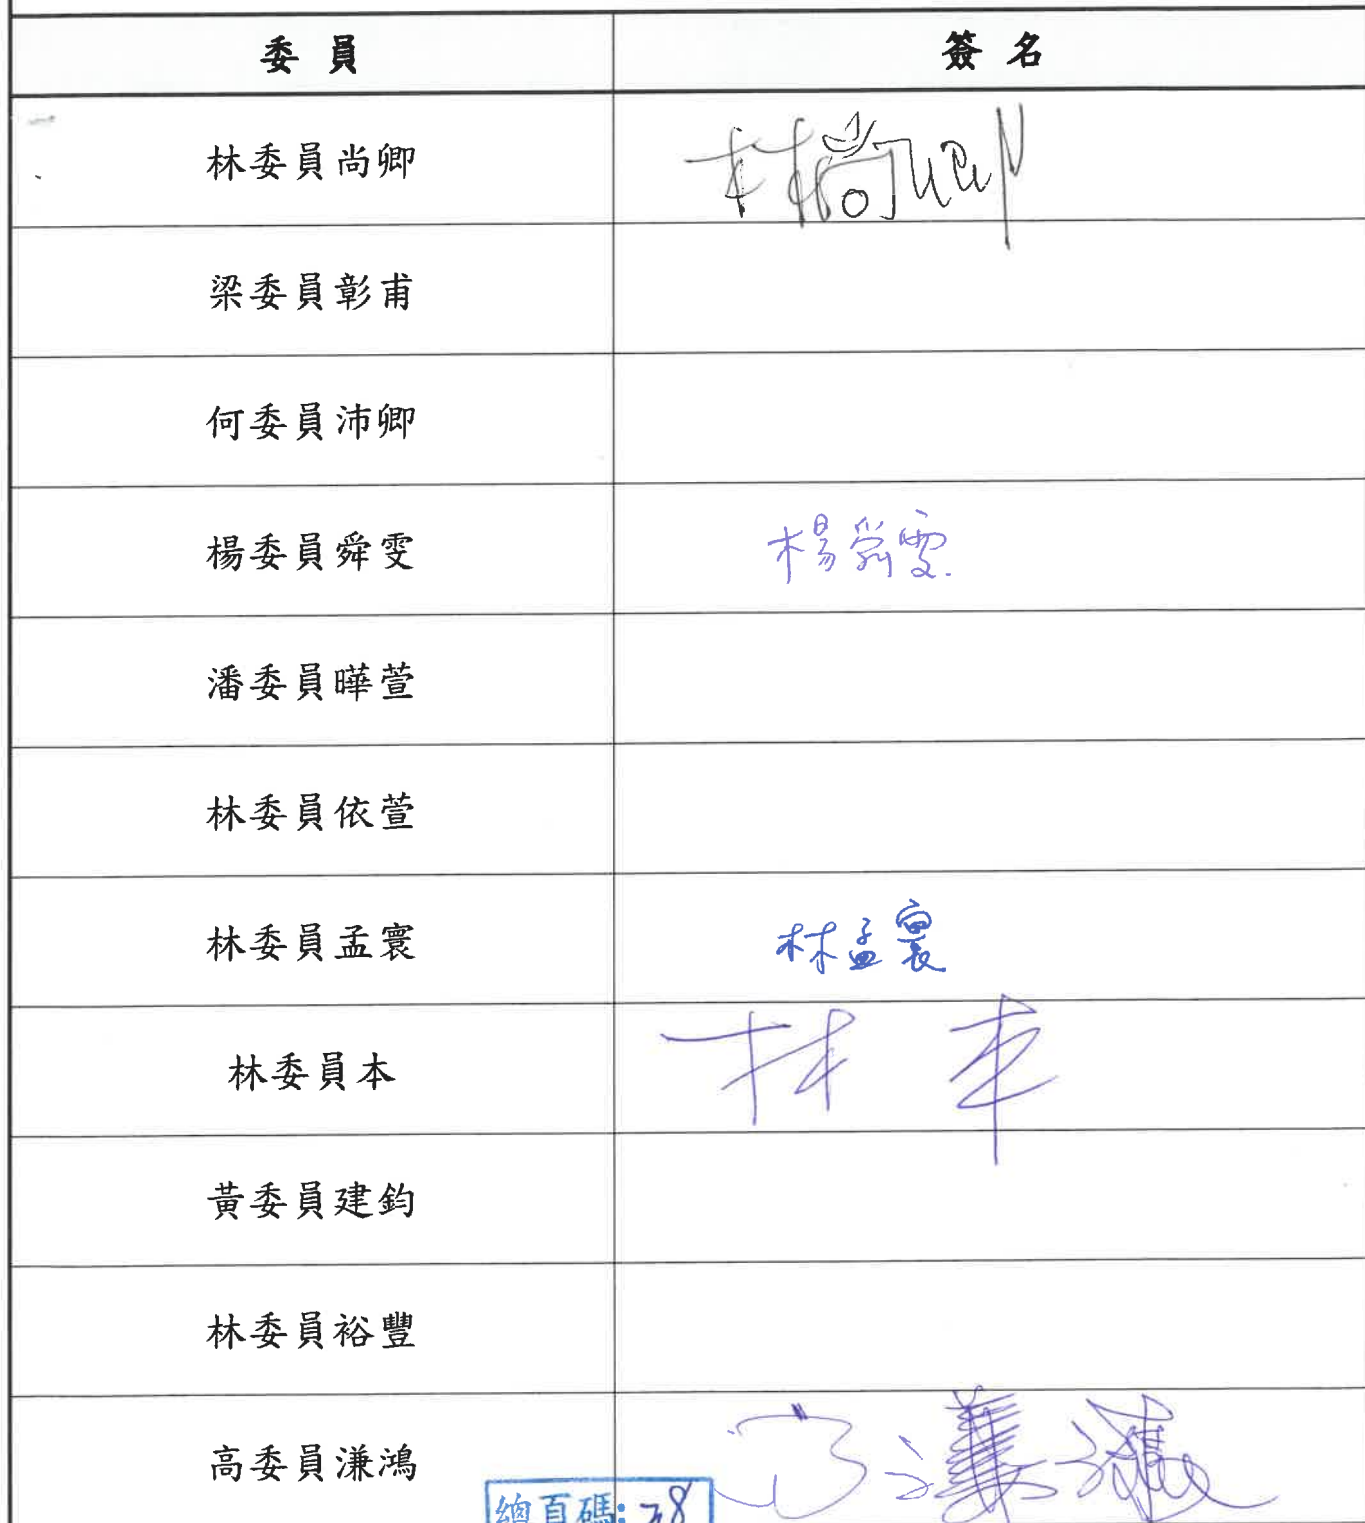 委員 簽名
林委員尚卿 林尚卿
梁委員彰甫
何委員沛卿
楊委員舜雯 楊舜雯
潘委員曄萱
林委員依萱
林委員孟寰 林孟寰
林委員本 林本
黃委員建鈞
林委員裕豐
高委員溓鴻 高溓鴻
總頁碼: